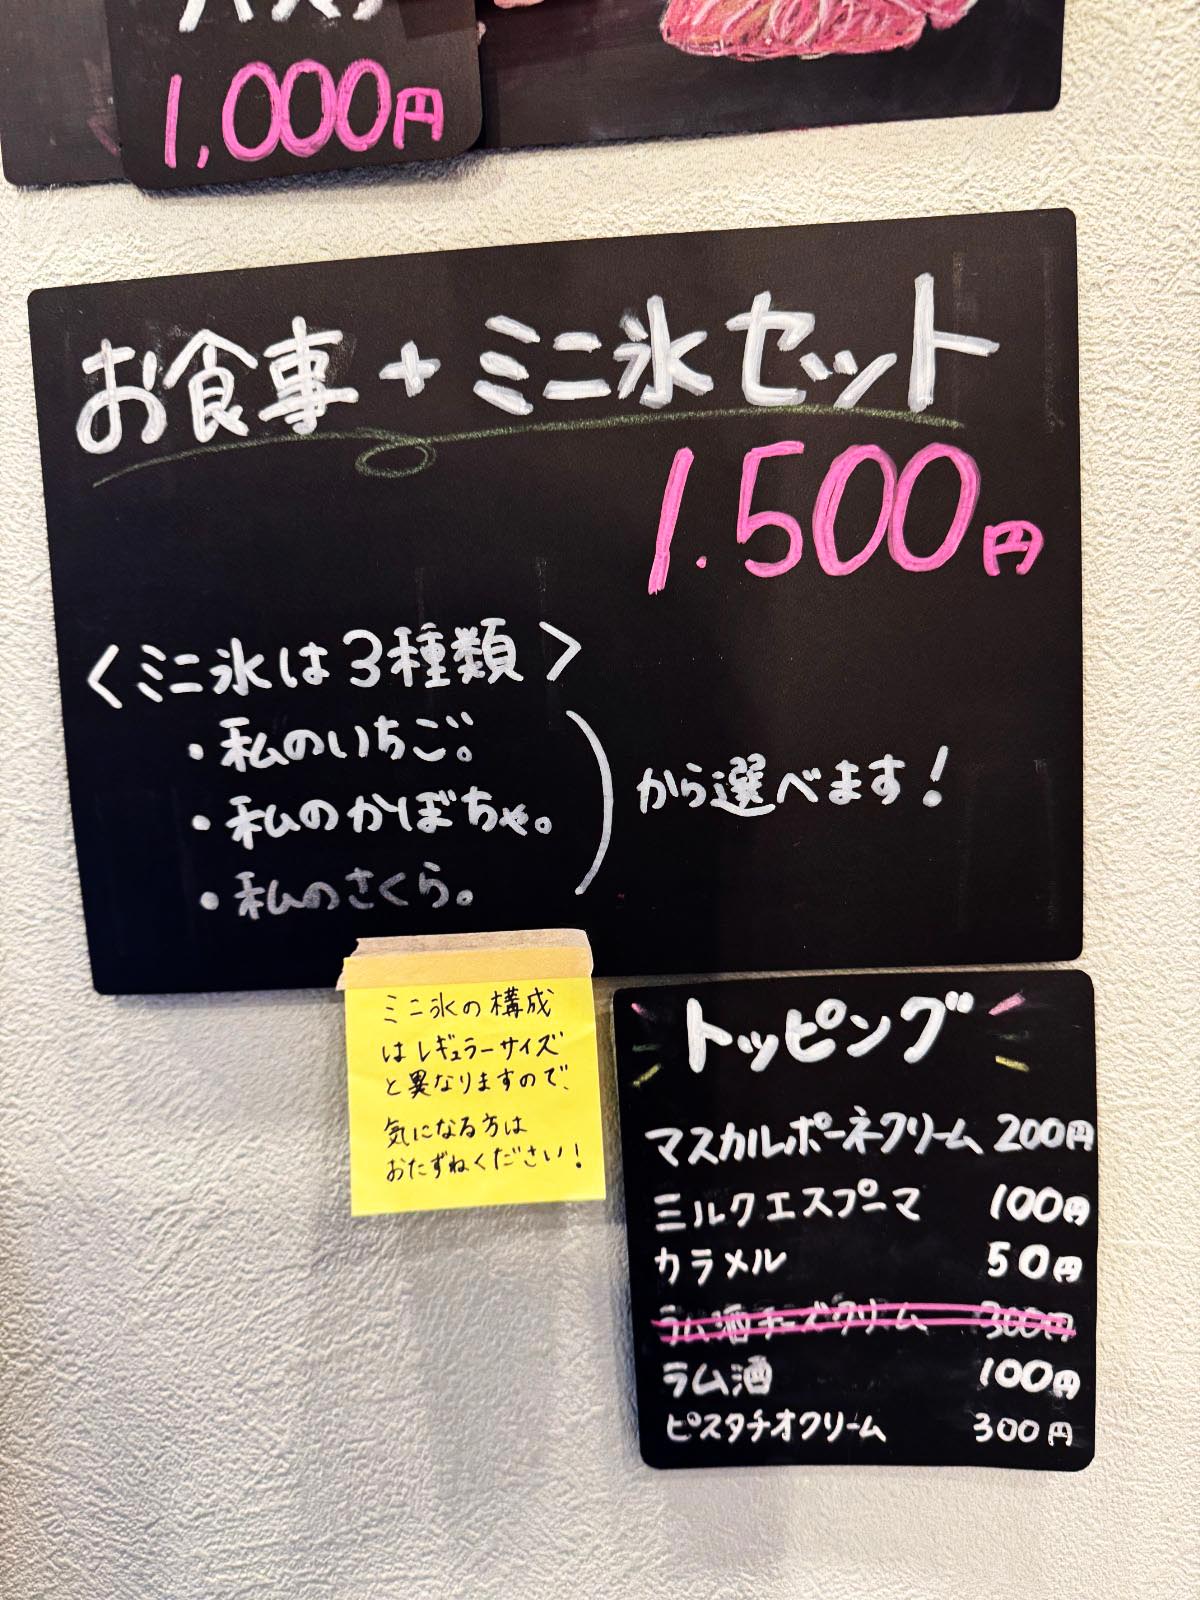 1,000円
お食事+ミニ氷セット
1.500円
〈ミニ氷は3種類〉
・私のいちご。
・私のかぼちゃ。
・私のさくら。
から選べます!
ミニ氷の構成
はレギュラーサイズ
と異なりますので、
気になる方は
おたずねください!
トッピング
マスカルポーネクリーム 200円
ミルクエスプーマ 100円
カラメル 50円
ラム酒チーズクリーム 300円
ラム酒 100円
ピスタチオクリーム 300円